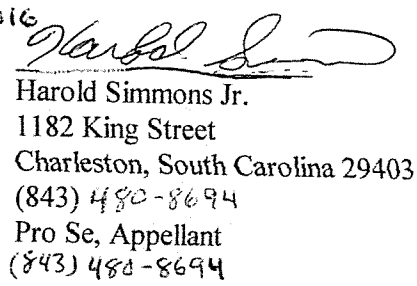 016
Harold Simmons Jr.
1182 King Street
Charleston, South Carolina 29403
(843) 480-8694
Pro Se, Appellant
(843) 480-8694